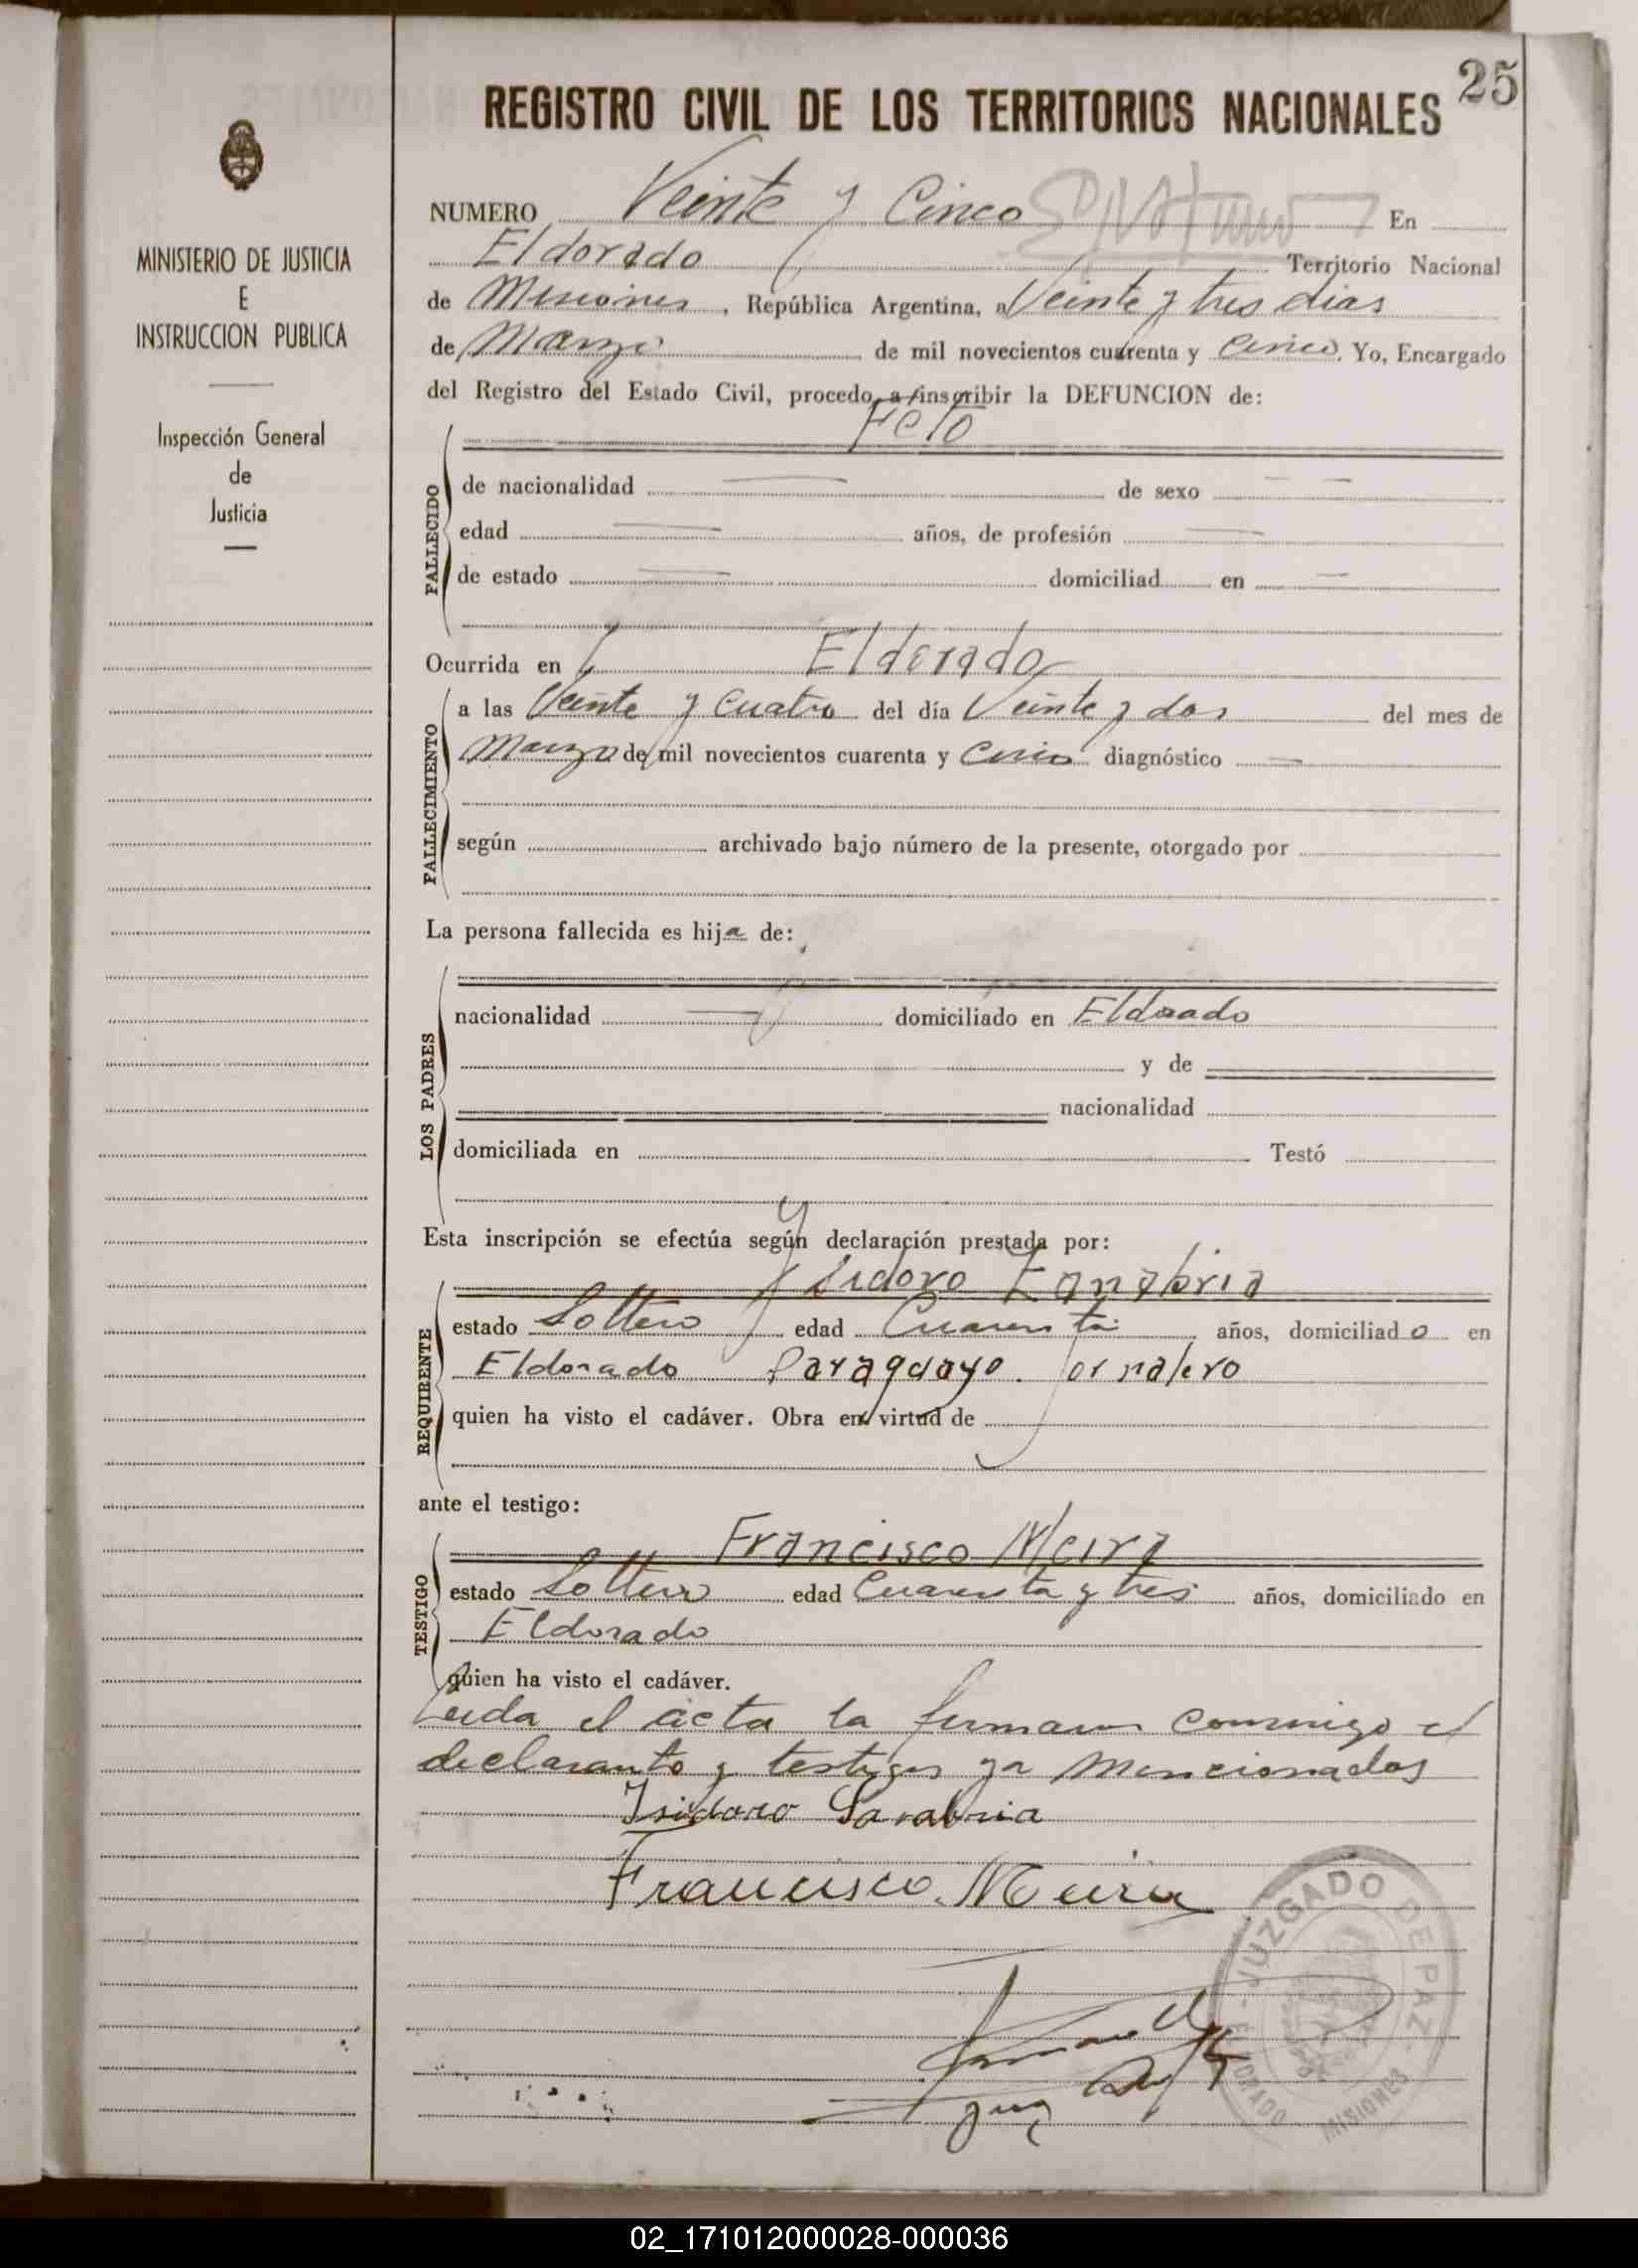 25
REGISTRO CIVIL DE LOS TERRITORIOS NACIONALES
MINISTERIO DE JUSTICIA
E
INSTRUCCION PUBLICA
Inspección General
de
Justicia
NUMERO Veinte y Cinco En
Eldorado Territorio Nacional
de Misiones, República Argentina, a Veinte y tres dias
de Marzo de mil novecientos cuarenta y Cinco. Yo, Encargado
del Registro del Estado Civil, procedo a inscribir la DEFUNCION de:
Feto
FALLECIDO
de nacionalidad — de sexo — —
edad — años, de profesión —
de estado — domiciliad en —
Ocurrida en Eldorado
FALLECIMIENTO
a las Veinte y Cuatro del día Veinte y dos del mes de
Marzo de mil novecientos cuarenta y Cinco diagnóstico —
según archivado bajo número de la presente, otorgado por
La persona fallecida es hija de:
LOS PADRES
nacionalidad — domiciliado en Eldorado
y de
nacionalidad
domiciliada en Testó
Esta inscripción se efectúa según declaración prestada por:
Isidoro Zanabria
REQUIRENTE
estado Soltero edad Cuarenta años, domiciliado en
Eldorado Paraguayo. Jornalero
quien ha visto el cadáver. Obra en virtud de
ante el testigo:
Francisco Meira
TESTIGO
estado Soltero edad Cuarenta y tres años, domiciliado en
Eldorado
quien ha visto el cadáver.
Leida el acta la firmaron conmigo el
declarante y testigos ya mencionados
Isidoro Sanabria
Francisco Meira
JUZGADO DE PAZ
ELDORADO MISIONES
Juez
02_171012000028-000036